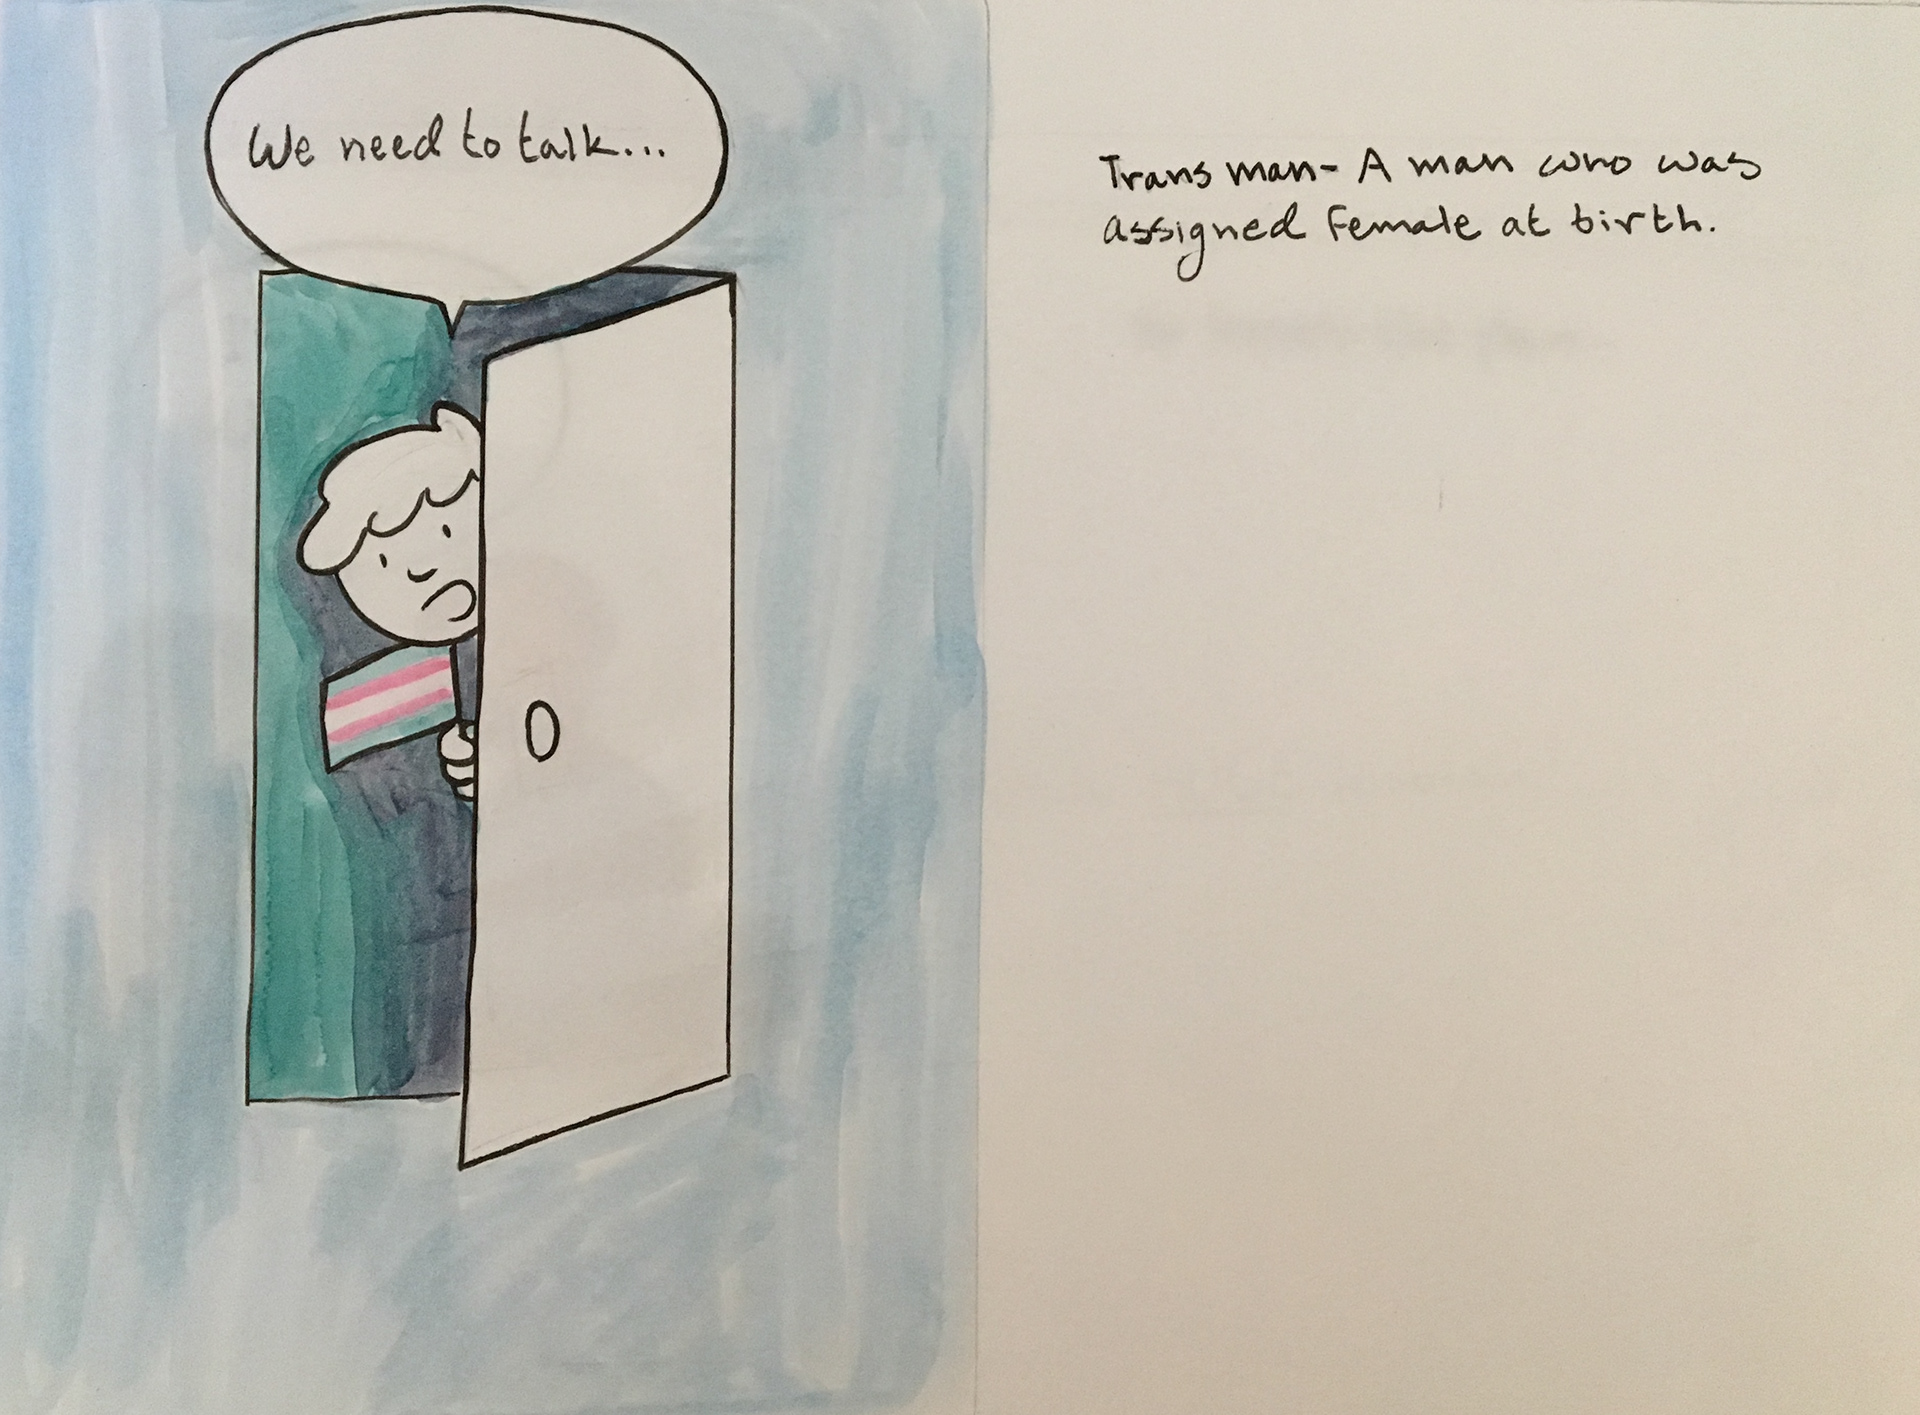 We need to talk...
Trans man- A man who was
assigned female at birth.